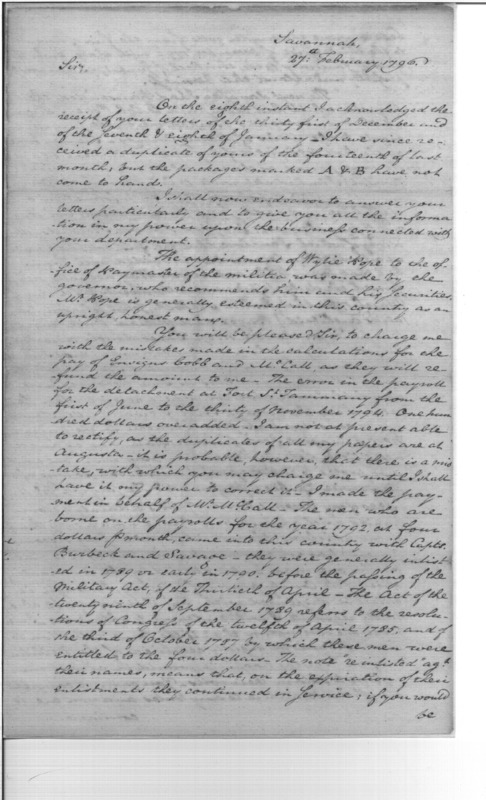 Savannah,
27th February 1796.
Sir,
On the eighth instant I acknowledged the
receipt of your letters of the thirty first of December and
of the seventh & eighth of January - I have since re-
ceived a duplicate of yours of the fourteenth of last
month, but the packages marked A & B have not
come to hand.
I shall now endeavor to answer your
letters particularly and to give you all the informa
tion in my power upon the business connected with
your department.
The appointment of Wylie Pope to the of-
fice of Paymaster of the militia was made by the
governor, who recommends him and his Securities.
Mr. Pope is generally esteemed in this country as an
upright, honest man.
You will be pleased Sir, to charge me
with the mistakes made in the calculations for the
pay of Ensigns Cobb and McCall as they will re-
fund the amount to me - The error in the payroll
for the detachment at Fort St. Tammany from the
first of June to the thirty of November 1794. One hun
dred dollars over added - I am not at present able
to rectify, as the duplicates of all my papers are at
Augusta - it is probable, however, that there is a mis
take, with which you may charge me until I shall
have it in my power to correct it - I made the pay-
ment in behalf of Mr. McCall - The men who are
borne on the payrolls for the year 1792, at four
dollars month, came into this country with Capts.
Burbeck and Savage - they were generally enlist
ed in 1789 or early in 1790, before the passing of the
Military Act, of the Thirtieth of April - The Act of the
twenty ninth of September 1789 refers to the resolu-
tions of Congress of the twelfth of April 1785, and of
the third of October 1787 by which these men were
entitled to the four dollars. The note "reinlisted" agt.
their names, means that, on the expiration of their
enlistments they continued in service; if you would
be